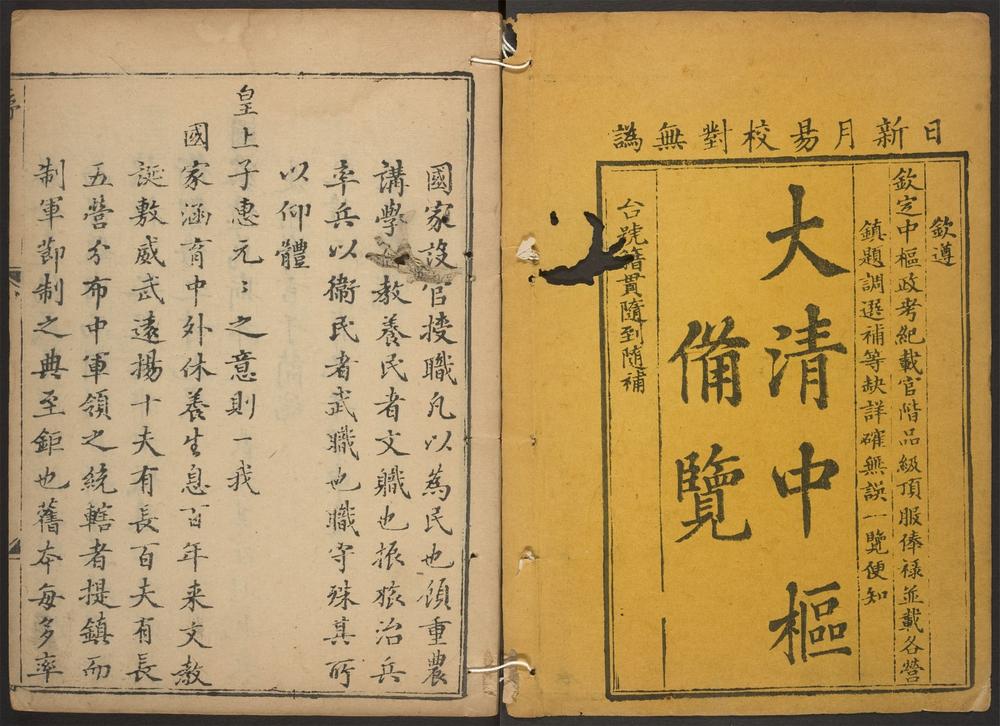 日新月易校對無譌
欽遵
欽定中樞政考紀載官階品級頂服俸祿並載各營
鎮題調選補等缺詳確無誤一覽便知
大清中樞
備覽
台號籍貫隨到隨補
國家設官授職凡以為民也顧重農
講學教養民者文職也振旅治兵
率兵以衞民者武職也職守殊其所
以仰體
皇上子惠元〻之意則一我
國家涵育中外休養生息百年来文教
誕敷威武遠揚十夫有長百夫有長
五營分布中軍領之統轄者提鎮而
制軍節制之典至鉅也舊本每多率
序